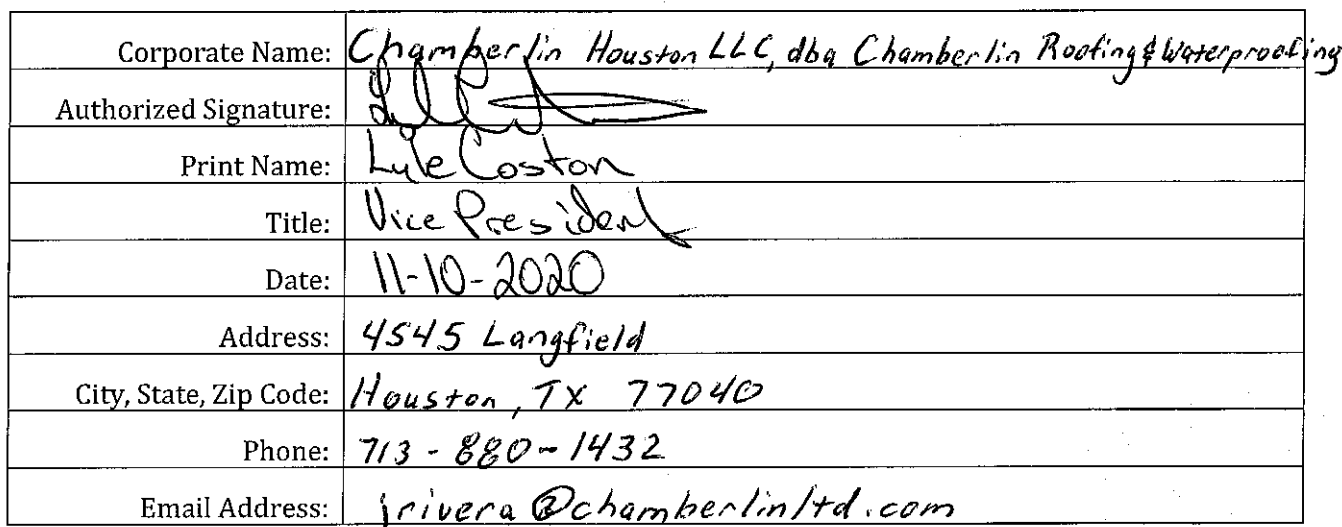 Corporate Name: Chamberlin Houston LLC, dba Chamberlin Roofing & Waterproofing
Authorized Signature:
Print Name: Lyle Coston
Title: Vice President
Date: 11-10-2020
Address: 4545 Langfield
City, State, Zip Code: Houston, TX 77040
Phone: 713-880-1432
Email Address: jrivera@chamberlinltd.com